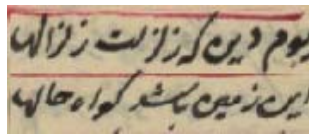 یوم دین که زلزلت زلزالها
این زمین باشد گواه حالها